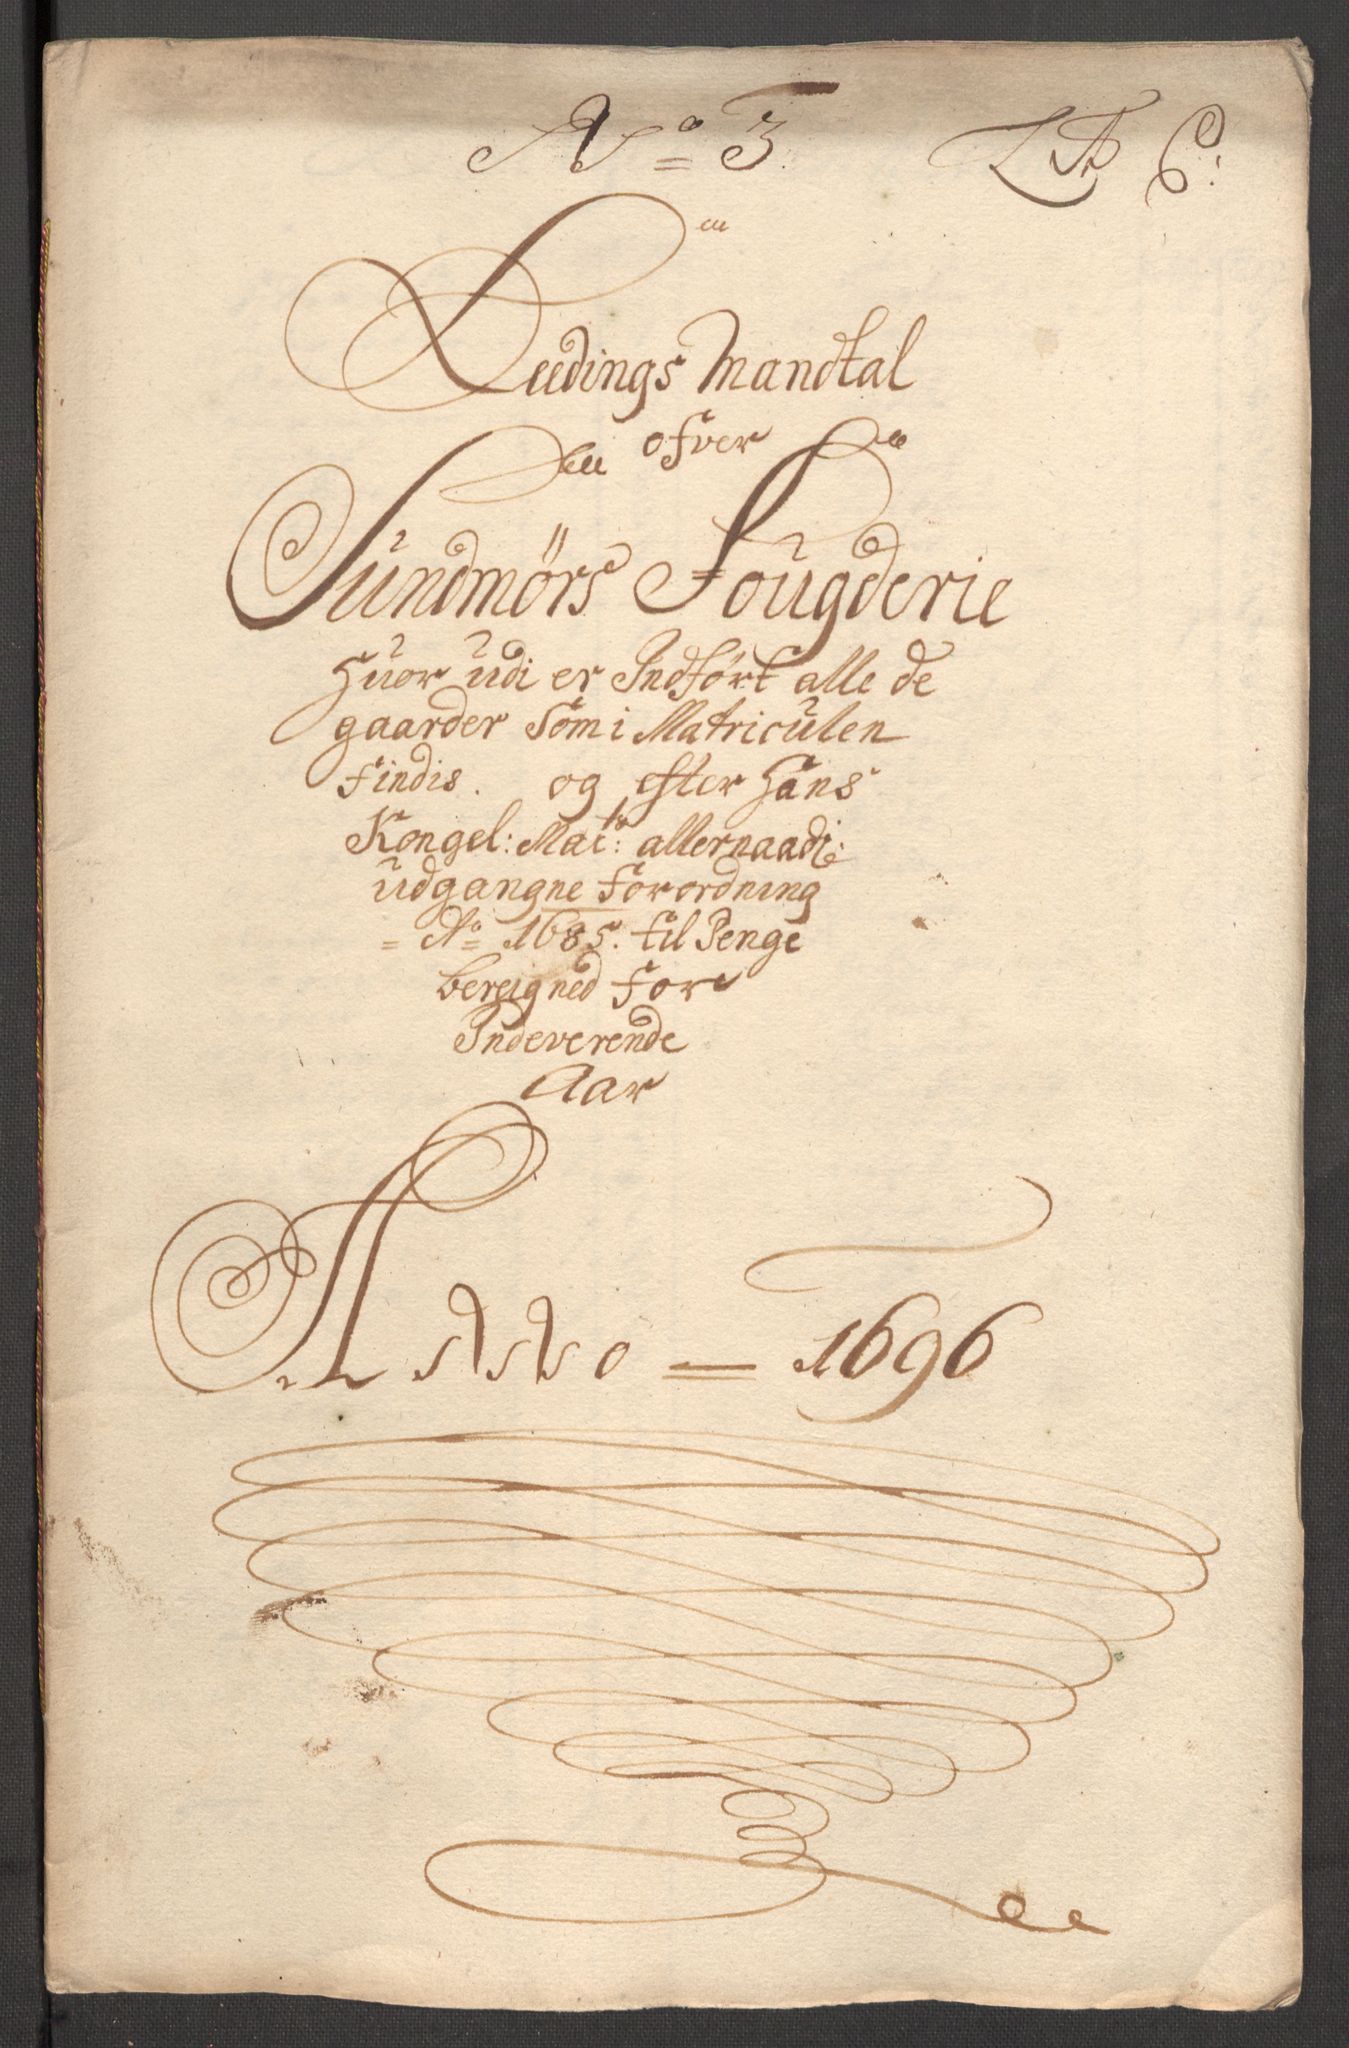 No 3 Lt C:
Leedings Mandtal
ofver
Sundmørs Fougderie
Huor udi er Indført alle de
gaarder Som i Matriculen
findis. og efter Hans
Kongel: Maits: allernaadi:
udgangne forordning
Ao 1685. til Penge
beregned for
Indeverende
Aar
ANNo 1696